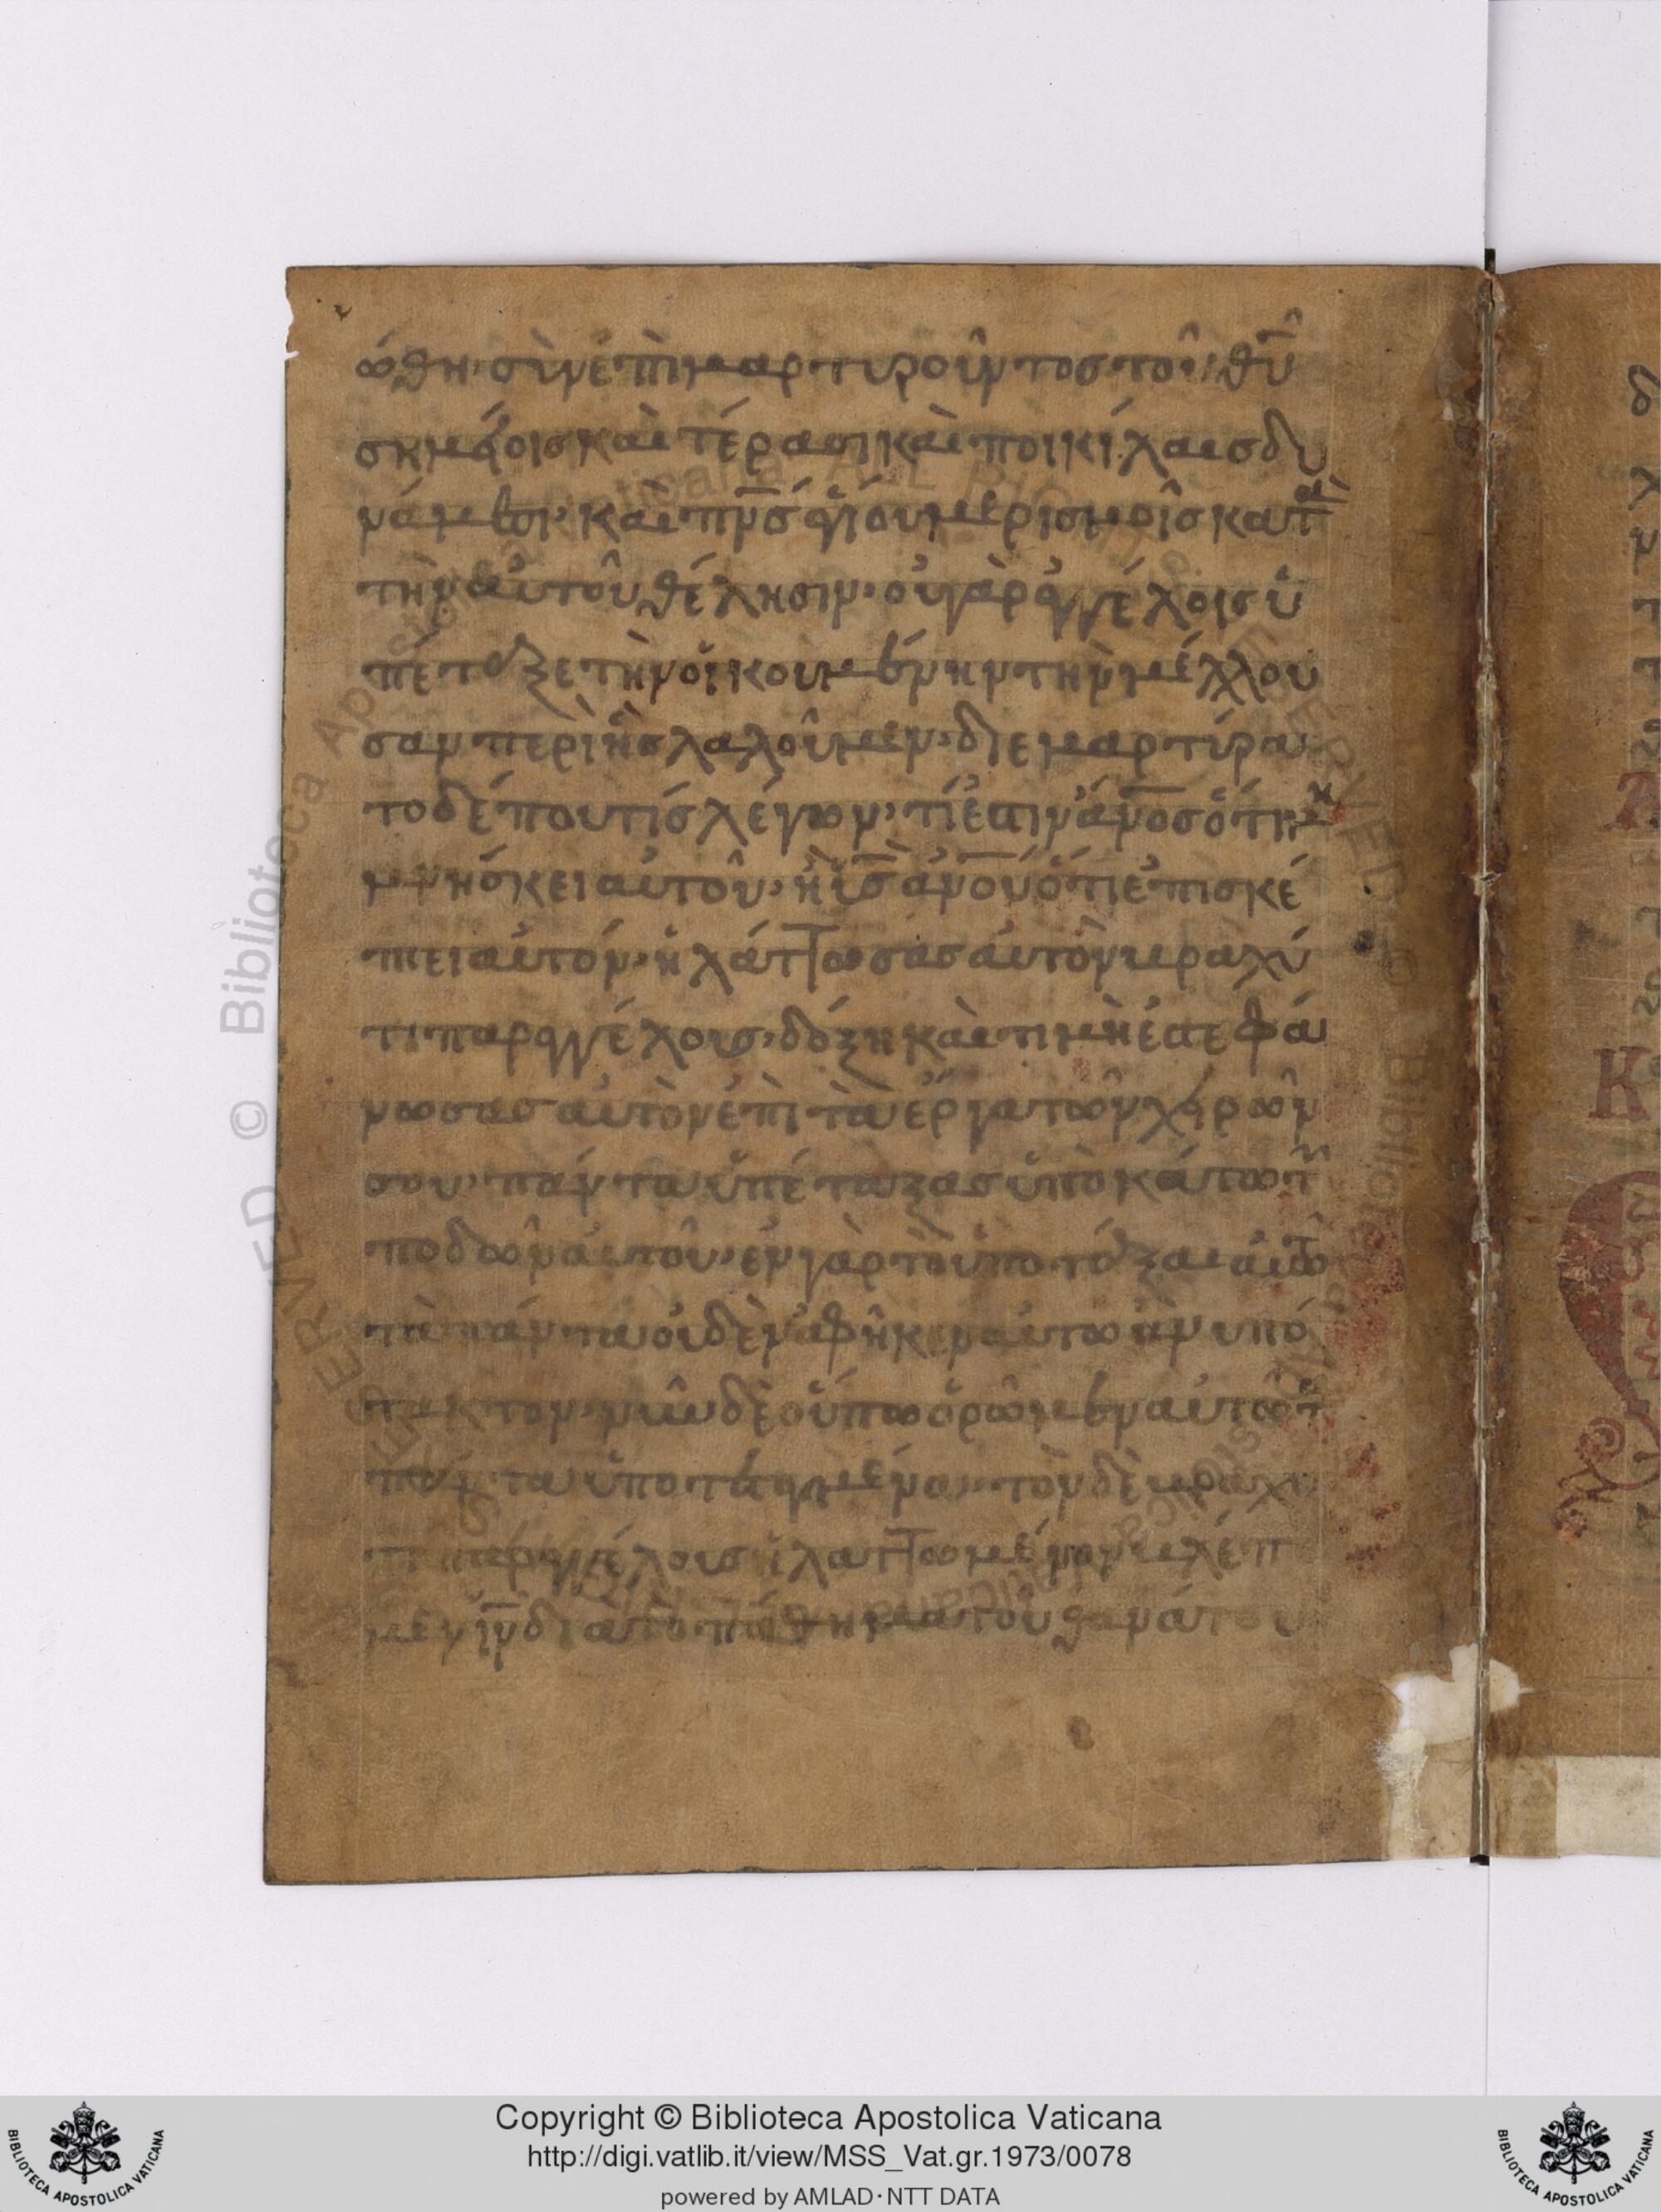 ώθη· σὺν ἐπὶμαρτυροῦντος τοῦ θῦ
σημείοις καὶ τέρασι καὶ ποικίλαις δυ
νάμεσι· καὶ πνς ἁγίου μερισμοῖς κατ
τὴν αὐτοῦ θέλησιν· οὐ γὰρ ἀγγέλοις ὑ
πέταξε τὴν οἰκουμένην τὴν μέλλου
σαν περὶ ἧς λαλοῦμεν· διεμαρτύρα
το δέ που τίς λέγων· τί ἐστιν ἄνος ὅτι μ
μνήσκει αὐτοῦ· ἢ ὑς ἀνου ὅτι ἐπισκέ
πτει αὐτόν· ἠλάττωσας αὐτὸν βραχύ
τι παρ ἀγγέλους· δόξη καὶ τιμὴ ἐστεφά
νωσας αὐτὸν ἐπὶ τὰ ἔργα τῶν χειρῶν
σου· πάντα ὑπέταξας ὑποκάτω τ
ποδῶν αὐτοῦ· ἐν γὰρ τὸ ὑποτάξαι αὐτῶ
τὰ πάντα οὐδὲν ἀφῆκεν αὐτω ἀνυπό
τακτον· νῦν δὲ οὔπω ὁρῶμεν αὐτῶ τ
πάντα ὑποτεταγμένα· τὸν δὲ βραχύ
τι παρ ἀγγέλους ἠλαττωμένον βλέπ
μεν ιν διὰ τὸ πάθημα τοῦ θανάτου
Copyright © Biblioteca Apostolica Vaticana
http://digi.vatlib.it/view/MSS_Vat.gr.1973/0078
powered by AMLAD·NTT DATA